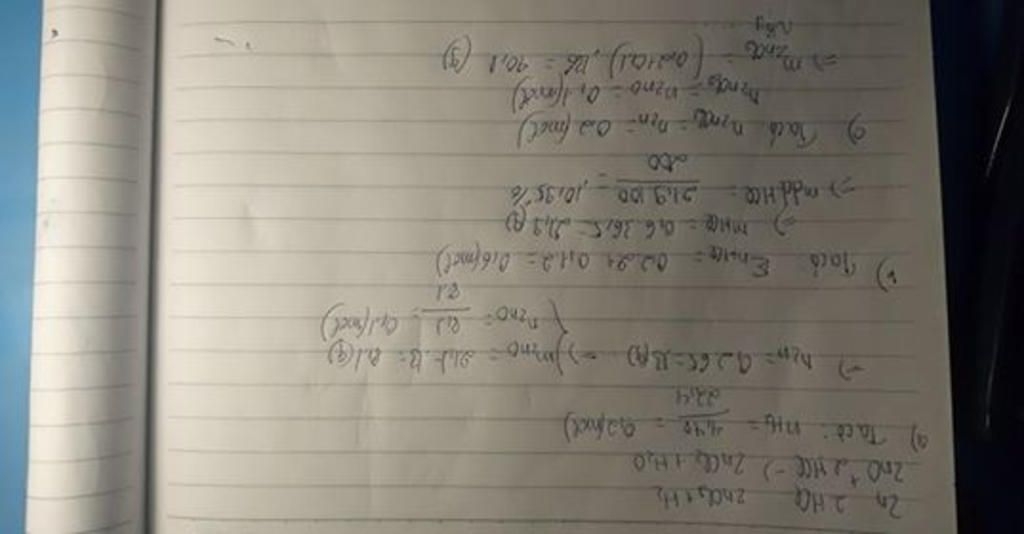 Zn 2HCl ZnCl2 + H2
ZnO + 2HCl -> ZnCl2 + H2O
a) Ta có: nH2 = 4,48 / 22,4 = 0,2 (mol)
-> nZn = 0,2.65 = 13 (g) => { mZnO = 21,1 - 13 = 8,1 (g)
nZnO = 8,1 / 81 = 0,1 (mol)
b) Ta có: ΣnHCl = 0,2.2 + 0,1.2 = 0,6 (mol)
=> mHCl = 0,6.36,5 = 21,9 (g)
=> mddHCl = 21,9.100 / 200 = 10,95%
c) Ta có nZnCl2 = nZn = 0,2 (mol)
nZnCl2 = nZnO = 0,1 (mol)
=> mZnCl2 = (0,2+0,1).136 = 40,8 (g)